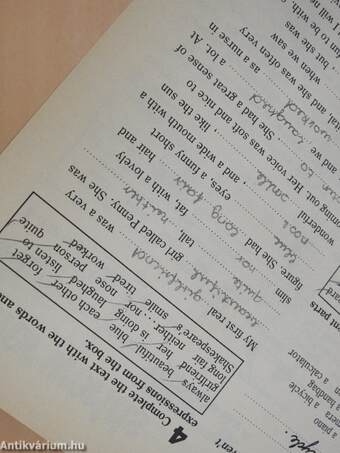 4 Complete the text with the words and
expressions from the box.
always beautiful blue each other forget
girlfriend her is doing laughed listen to
long fair neither ... nor nose person quite
Shakespeare's smile tired worked
My first real girlfriend was a very
beautiful girl called Penny. She was
tall, nor fat, with a lovely
slim figure. She had long fair hair and
blue eyes, a funny short
nose, and a wide mouth with a
wonderful smile, like the sun
coming out. Her voice was soft and nice to
She had a great sense of
we laughed a lot. At
worked as a nurse in
ital, and she was often very
, but she was
when we saw
ven't
a piano a bicycle
mera a handbag
a calculator
ent parts
Antikvárium.hu